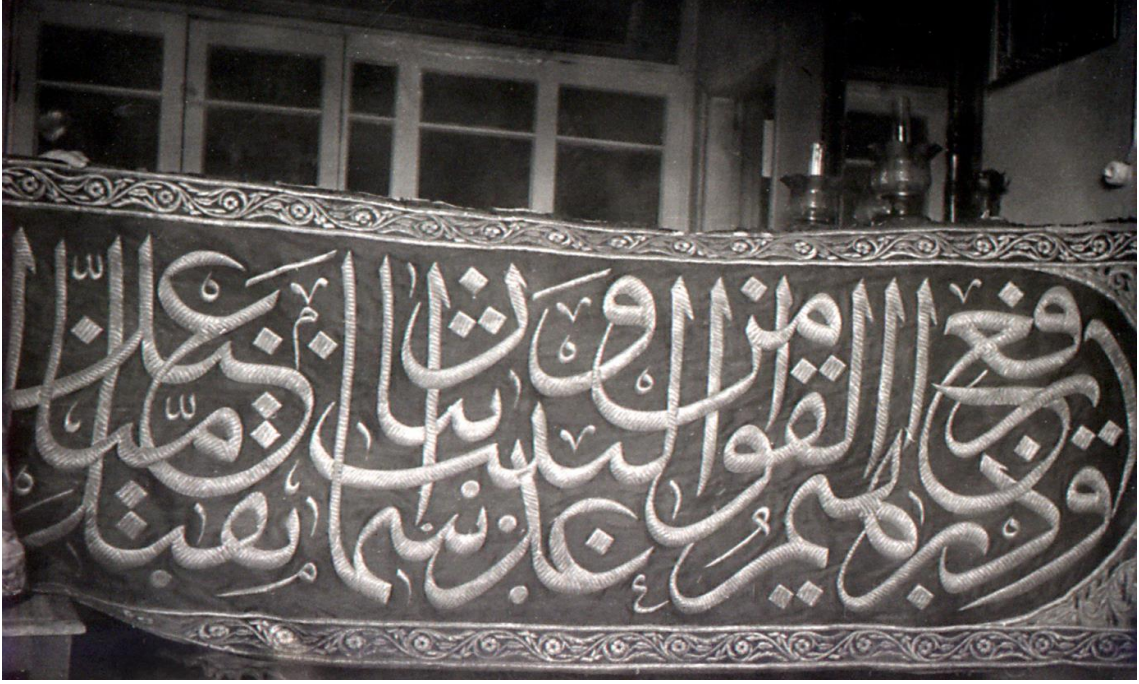 وإذ يرفع إبرهيم القواعد من البيت وإسمعيل ربنا تقبل منا